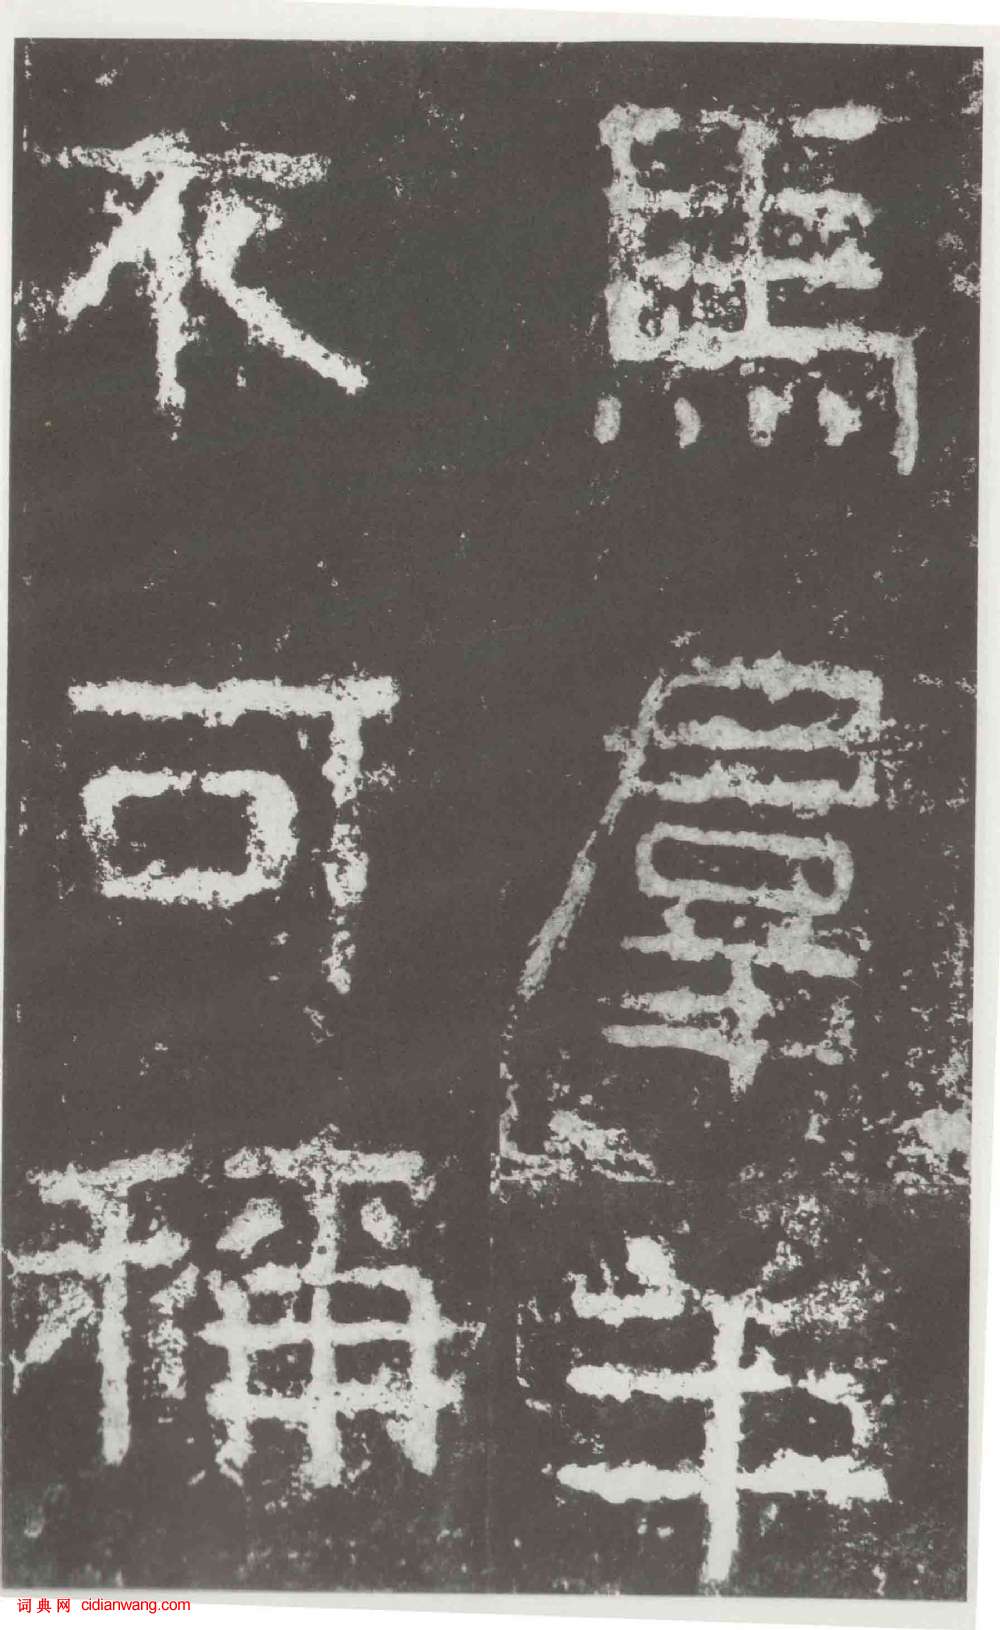 馬群羊
不可稱
词典网 cidianwang.com